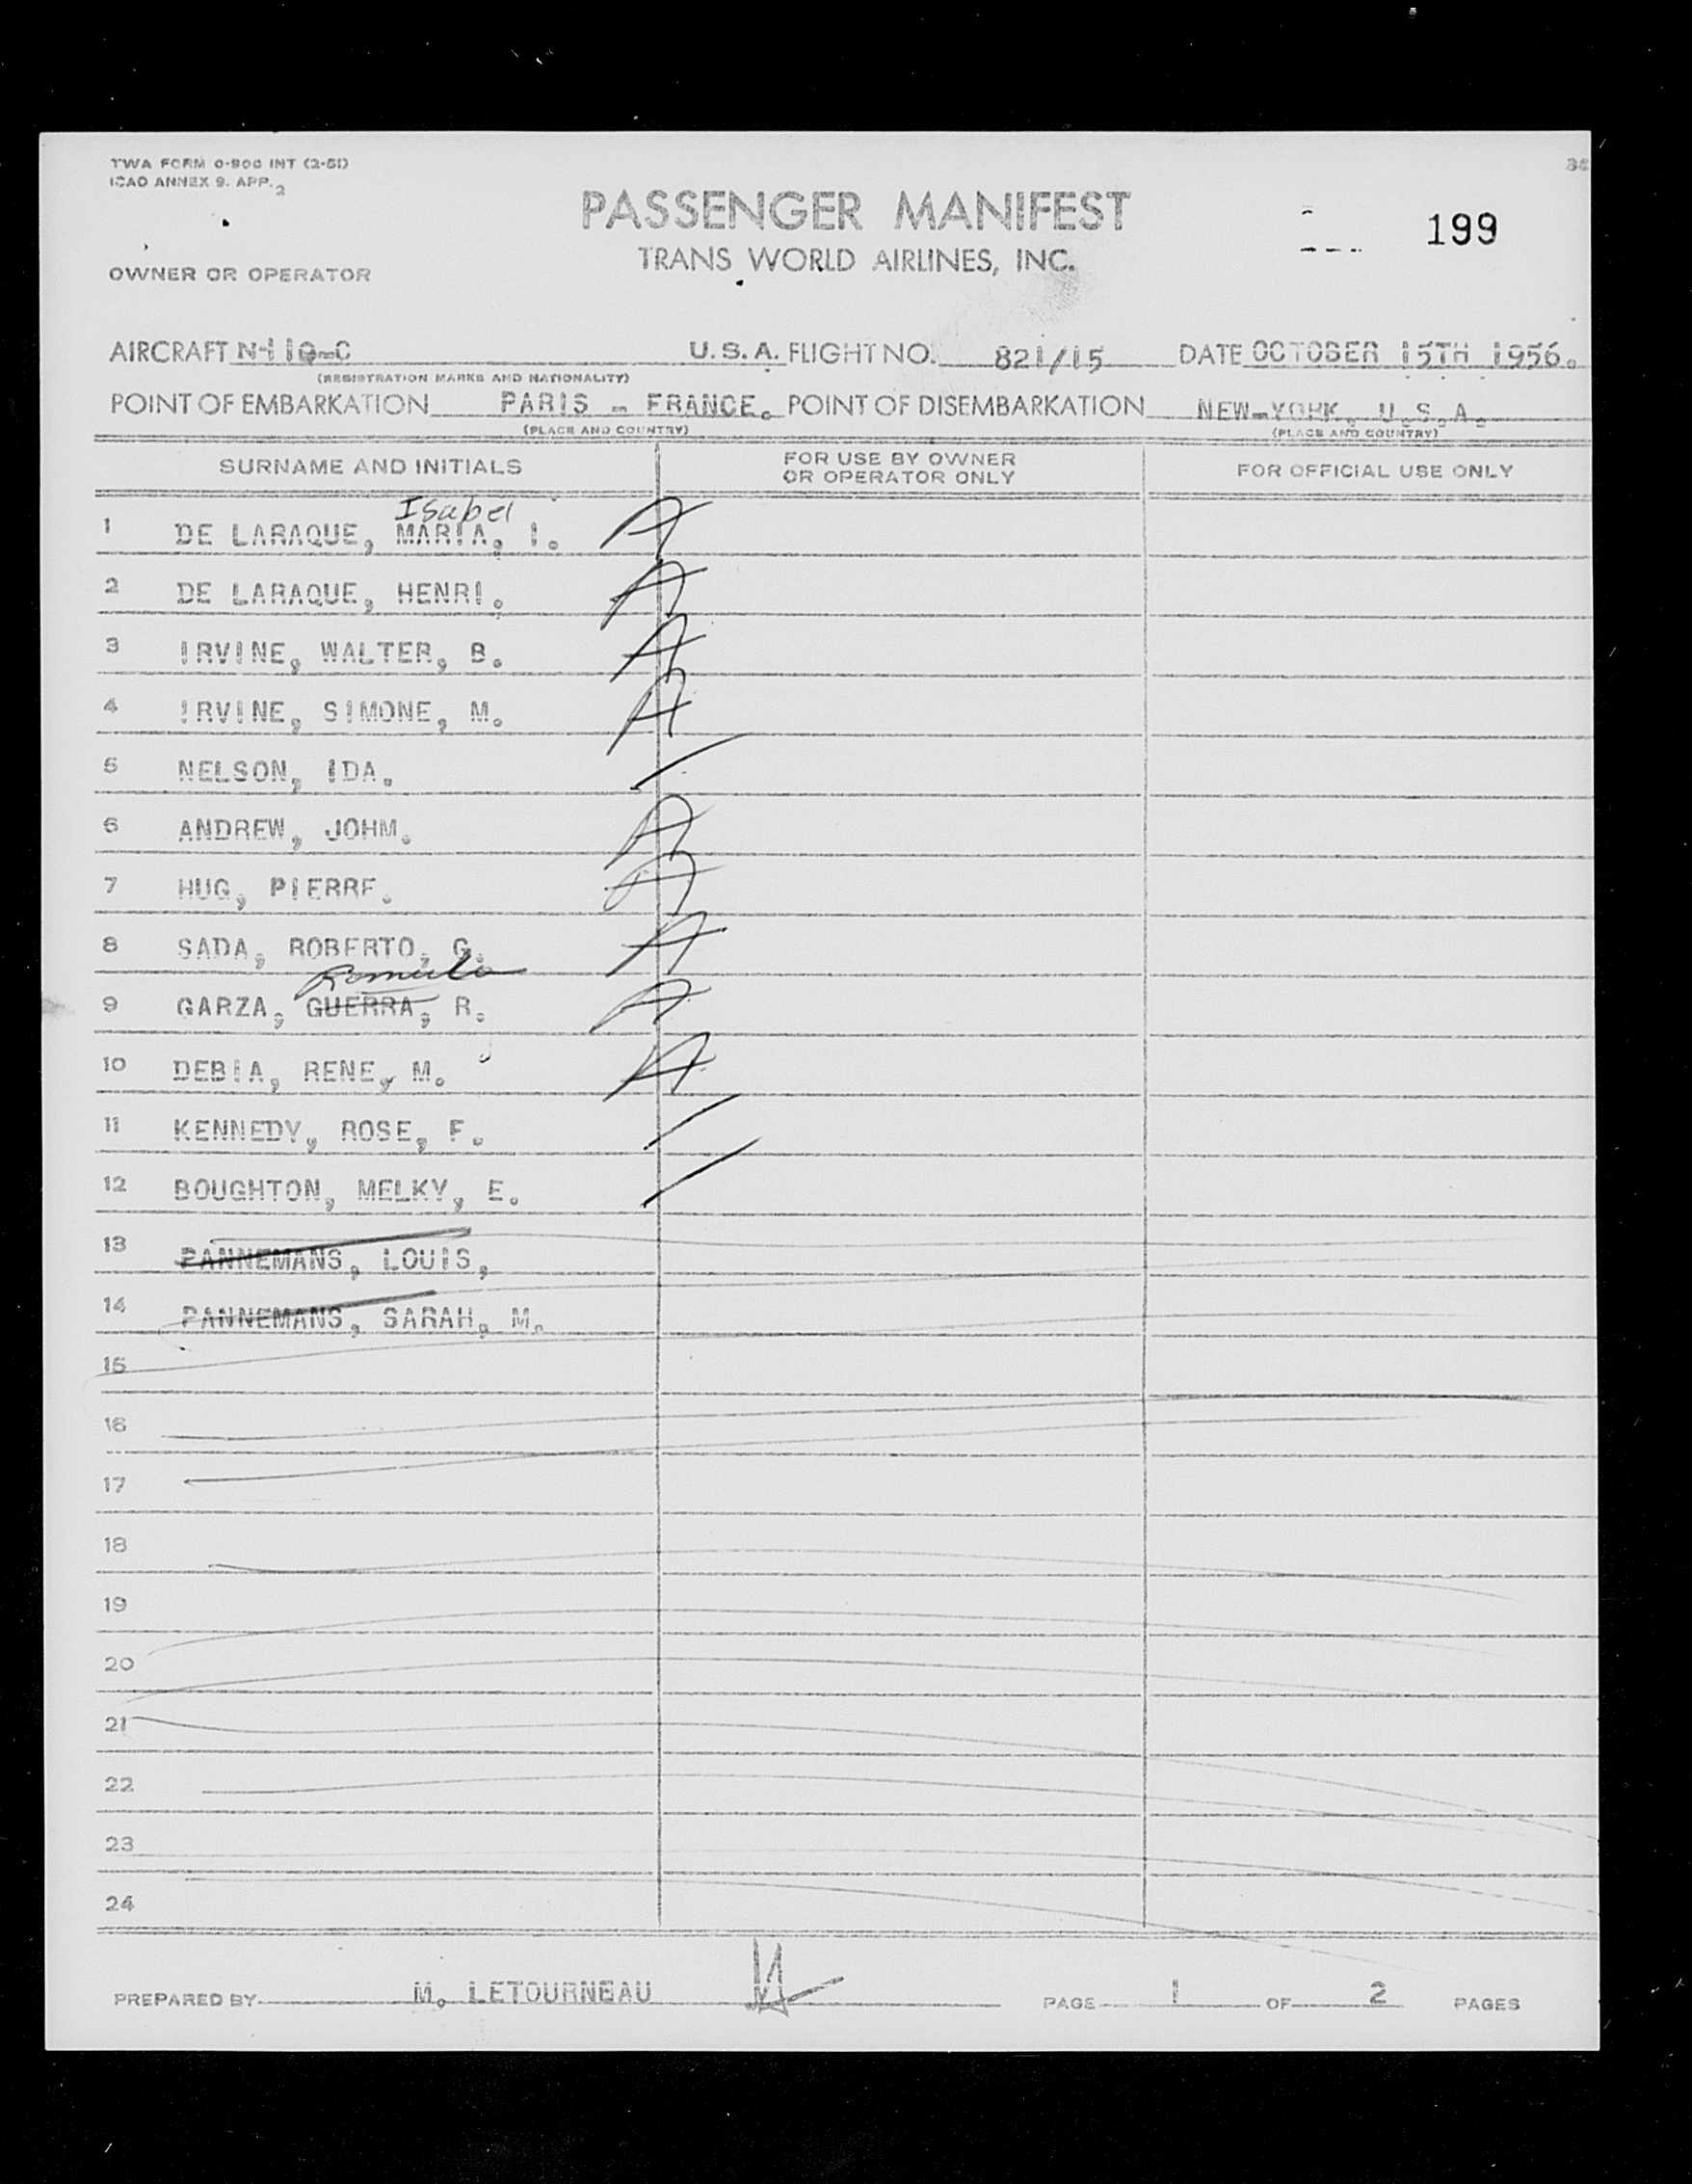 TWA FORM 0-800 INT (2-51)
ICAO ANNEX 9. APP. 2
PASSENGER MANIFEST
199
TRANS WORLD AIRLINES, INC.
OWNER OR OPERATOR
AIRCRAFT U.S.A. FLIGHT NO. 821/15 DATE OCTOBER 15TH 1956.
(REGISTRATION MARKS AND NATIONALITY)
POINT OF EMBARKATION PARIS - FRANCE. POINT OF DISEMBARKATION NEW-YORK, U.S.A.
(PLACE AND COUNTRY) (PLACE AND COUNTRY)
SURNAME AND INITIALS FOR USE BY OWNER OR OPERATOR ONLY FOR OFFICIAL USE ONLY
Isabel
1 DE LARAQUE, MARIA, I. A
2 DE LARAQUE, HENRI. A
3 IRVINE, WALTER, B. A
4 IRVINE, SIMONE, M. A
5 NELSON, IDA.
6 ANDREW, JOHM. A
7 HUG, PIERRE. A
8 SADA, ROBERTO, G. A
Romulo
9 GARZA, GUERRA, R. A
10 DEBIA, RENE, M. A
11 KENNEDY, ROSE, F.
12 BOUGHTON, MELKY, E.
13 PANNEMANS, LOUIS,
14 PANNEMANS, SARAH, M.
15
16
17
18
19
20
21
22
23
24
PREPARED BY M. LETOURNEAU PAGE 1 OF 2 PAGES